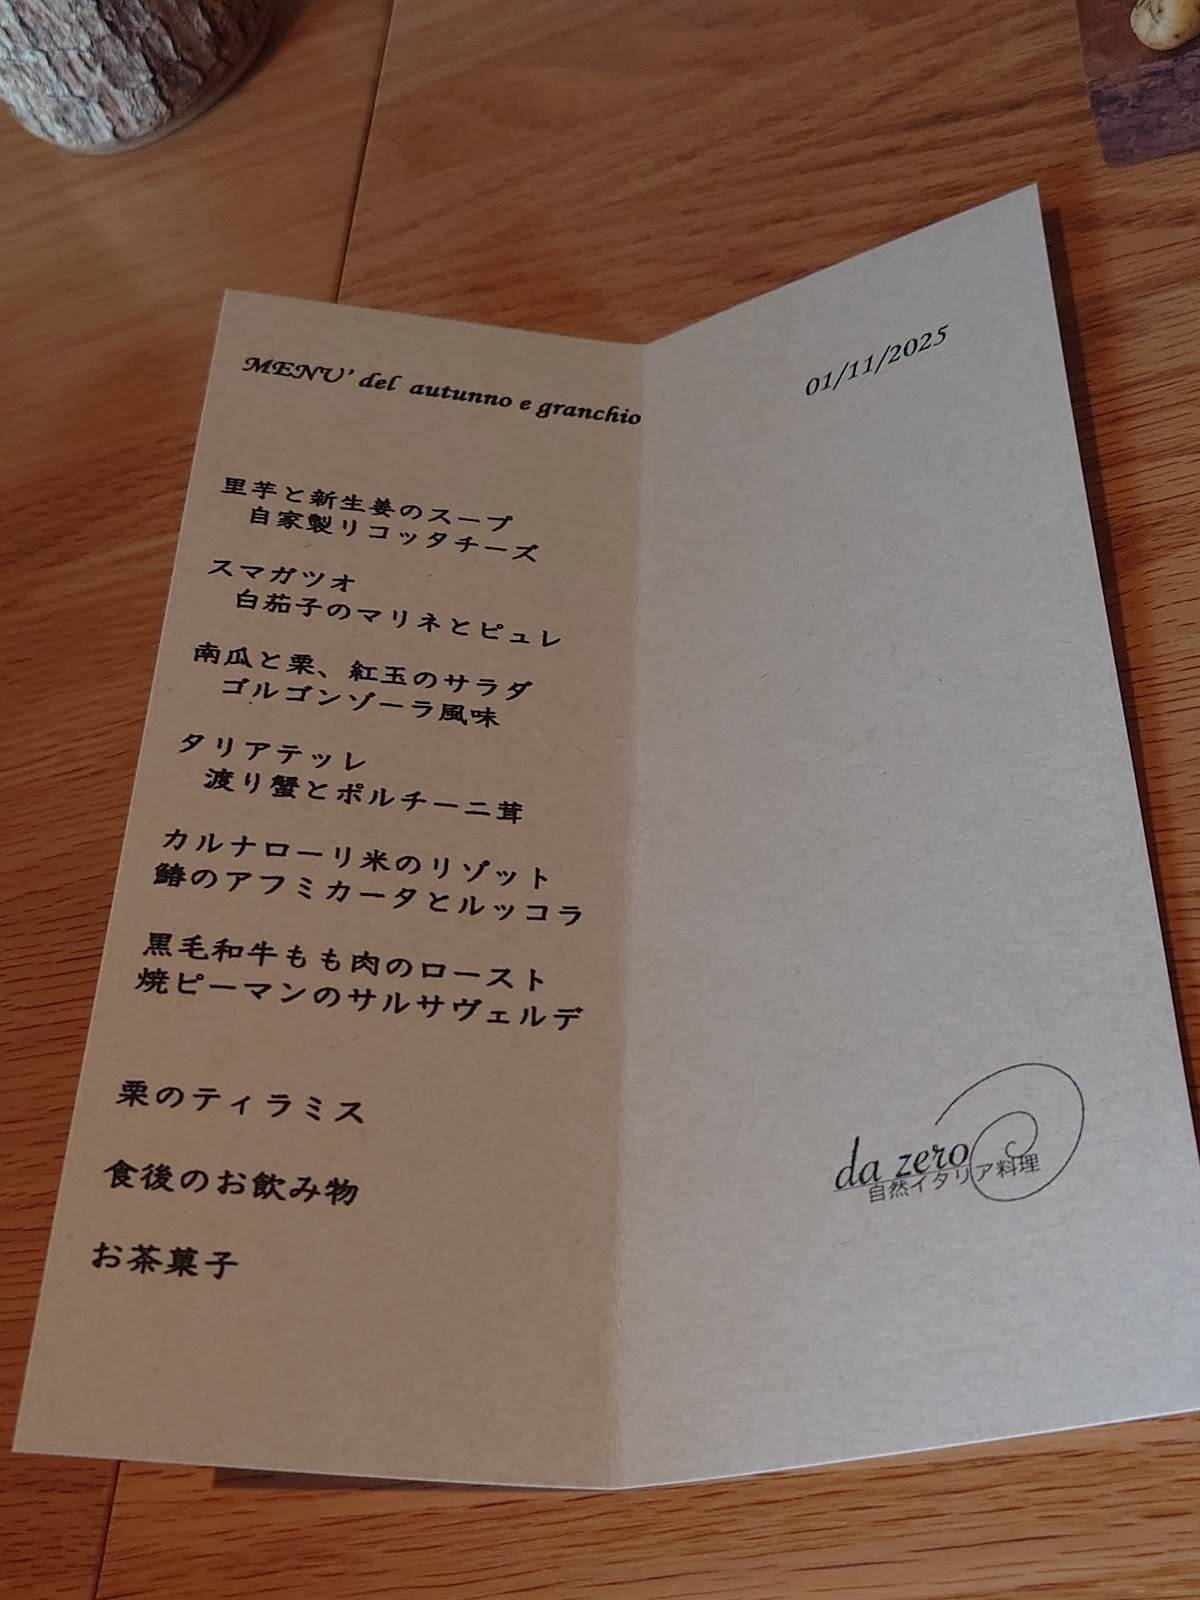 MENU' del autunno e granchio
里芋と新生姜のスープ
自家製リコッタチーズ
スマガツオ
白茄子のマリネとピュレ
南瓜と栗、紅玉のサラダ
ゴルゴンゾーラ風味
タリアテッレ
渡り蟹とポルチーニ茸
カルナローリ米のリゾット
鰆のアフミカータとルッコラ
黒毛和牛もも肉のロースト
焼ピーマンのサルサヴェルデ
栗のティラミス
食後のお飲み物
お茶菓子
01/11/2025
da zero
自然イタリア料理